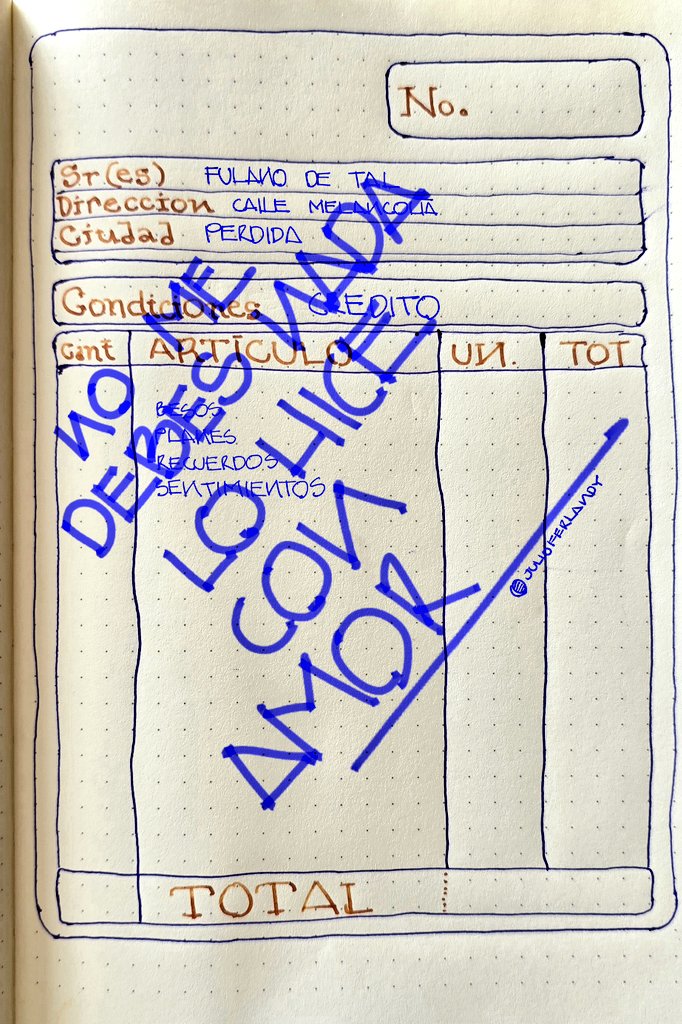 No.
Sr(es) FULANO DE TAL
Direccion CALLE MELANCOLIA
Ciudad PERDIDA
Condiciones CREDITO
Cant ARTÍCULO UN. TOT
BESOS
PLANES
RECUERDOS
SENTIMIENTOS
NO ME
DEBES NADA
LO HICE
CON
AMOR
@JULIOFERLANDY
TOTAL